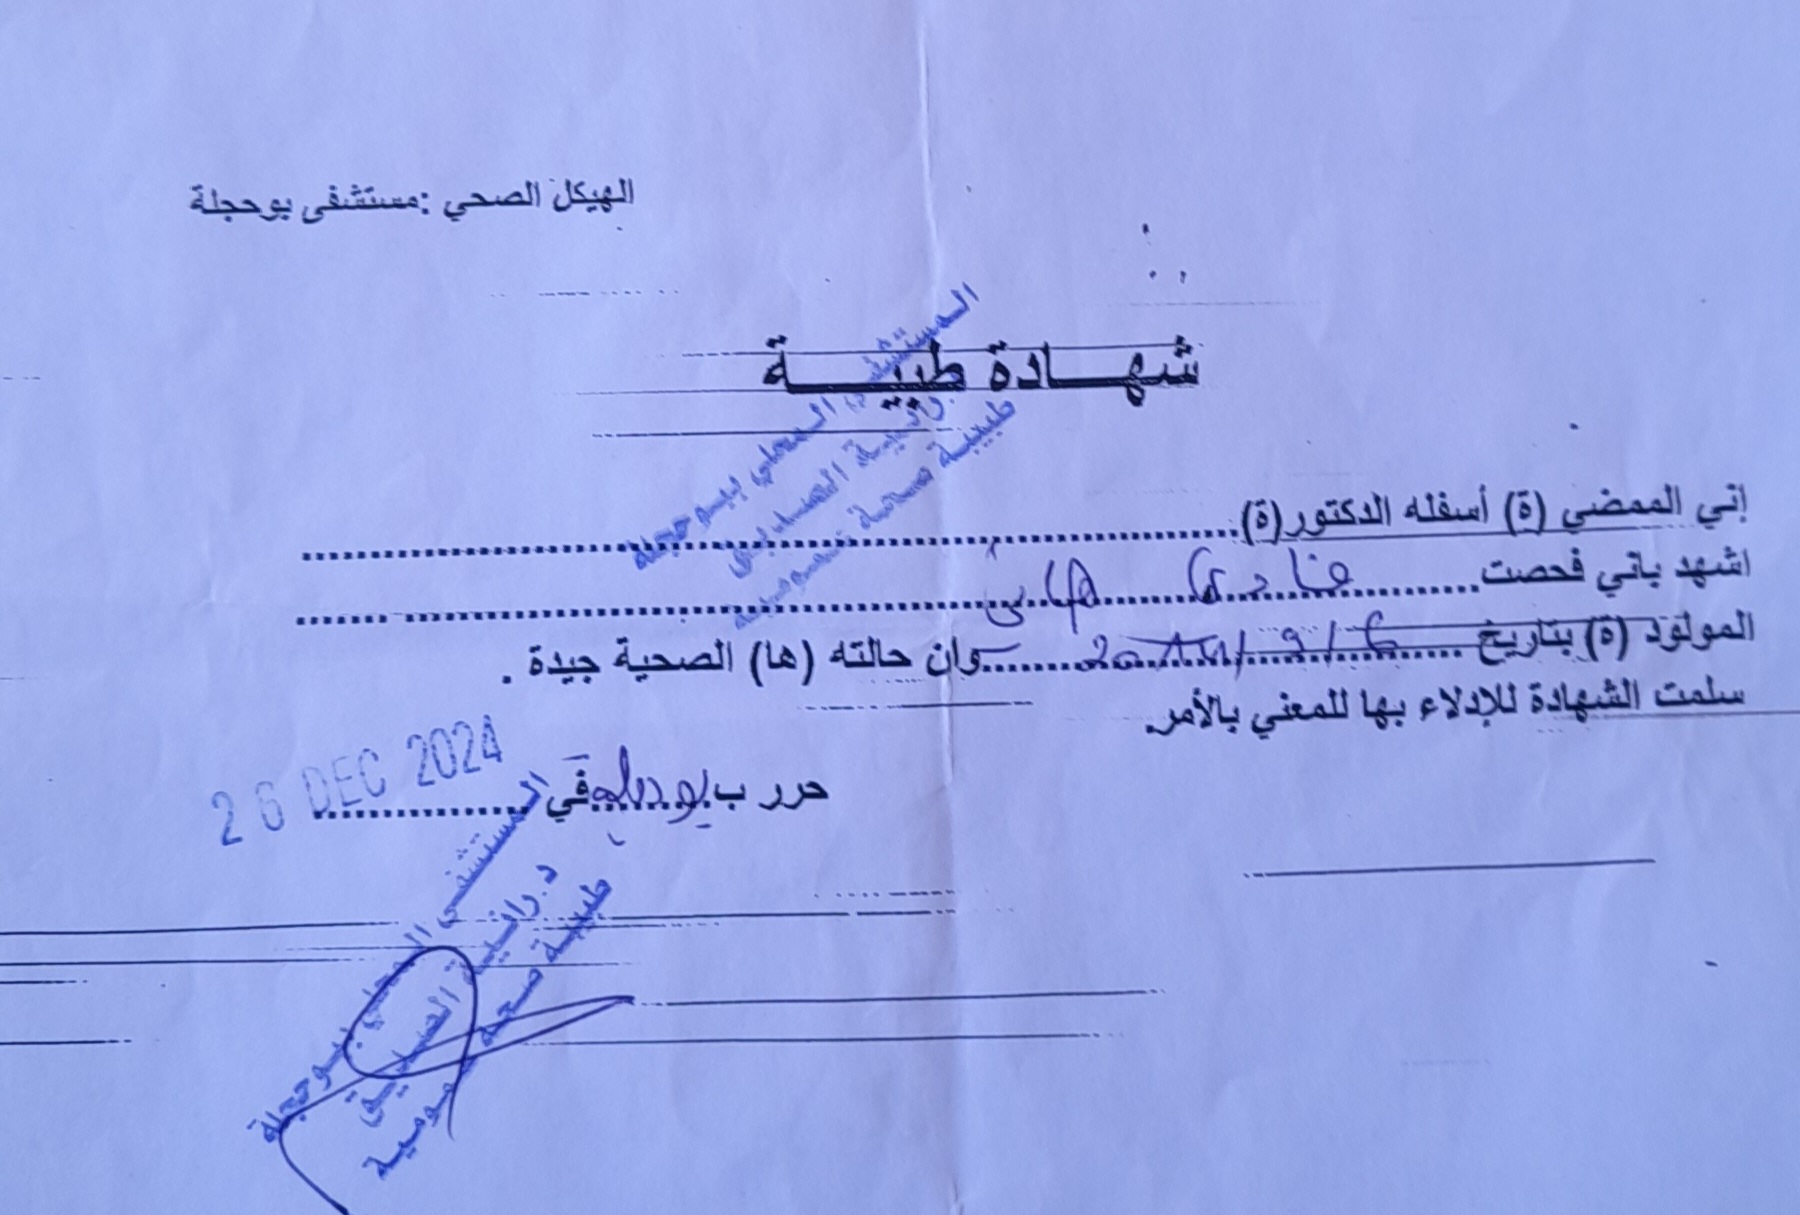 الهيكل الصحي :مستشفى بوحجلة
شهـــادة طبيـــة
المستشفى المحلي ببوحجلة
رانية الصديق
طبيبة صحة عمومية
إني الممضي (ة) أسفله الدكتور(ة)
اشهد باني فحصت
المولود (ة) بتاريخ وان حالته (ها) الصحية جيدة .
سلمت الشهادة للإدلاء بها للمعني بالأمر.
حرر ب بوحجلة في 26 DEC 2024
المستشفى المحلي ببوحجلة
د.رانية الصديق
طبيبة صحة عمومية